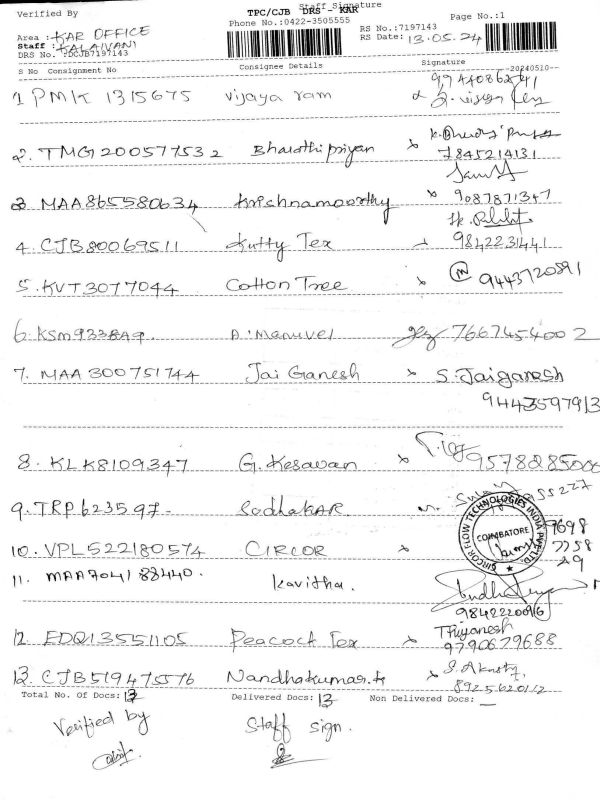 Verified By
TPC/CJB DRS - KAR
Staff Signature
Page No.:1
Phone No.:0422-3505555
RS No.:7197143
Area : KAR OFFICE
RS Date: 13.05.24
Staff : KALAIVANI
DRS No. DCJB7197143
S No Consignment No Consignee Details Signature --20240510--
1 PMK 1315675 vijaya ram 9744086241
2. TMG200577532 Bharathipriyan x 7845214131
3 MAA865580634 Krishnamoorthy x 9087871347
4. CJB80069511 Kutty Tex 9842231441
5. KVT3077044 Cotton Tree x 9443720591
6. KSM9338A9 A. Manuvel 7667454002
7. MAA300751744 Jai Ganesh x S. Jaiganesh
9443597913
8. KLK8109347 G. Kesavan x 9578285006
9. TRP623597- SodhakAR
10. VPL522180574 CIRCOR x 9698
7758
29
CIRCOR FLOW TECHNOLOGIES INDIA PVT LTD.
COIMBATORE
11. MAA704188440. Kavitha.
9842220096
12 EDQ13551105 Peacock Tex x Thiyanesh
9790679688
13. CJB519475576 Nandhakumar.K x
8925620112
Total No. Of Docs: 13 Delivered Docs: 13 Non Delivered Docs: —
Verified by Staff sign.